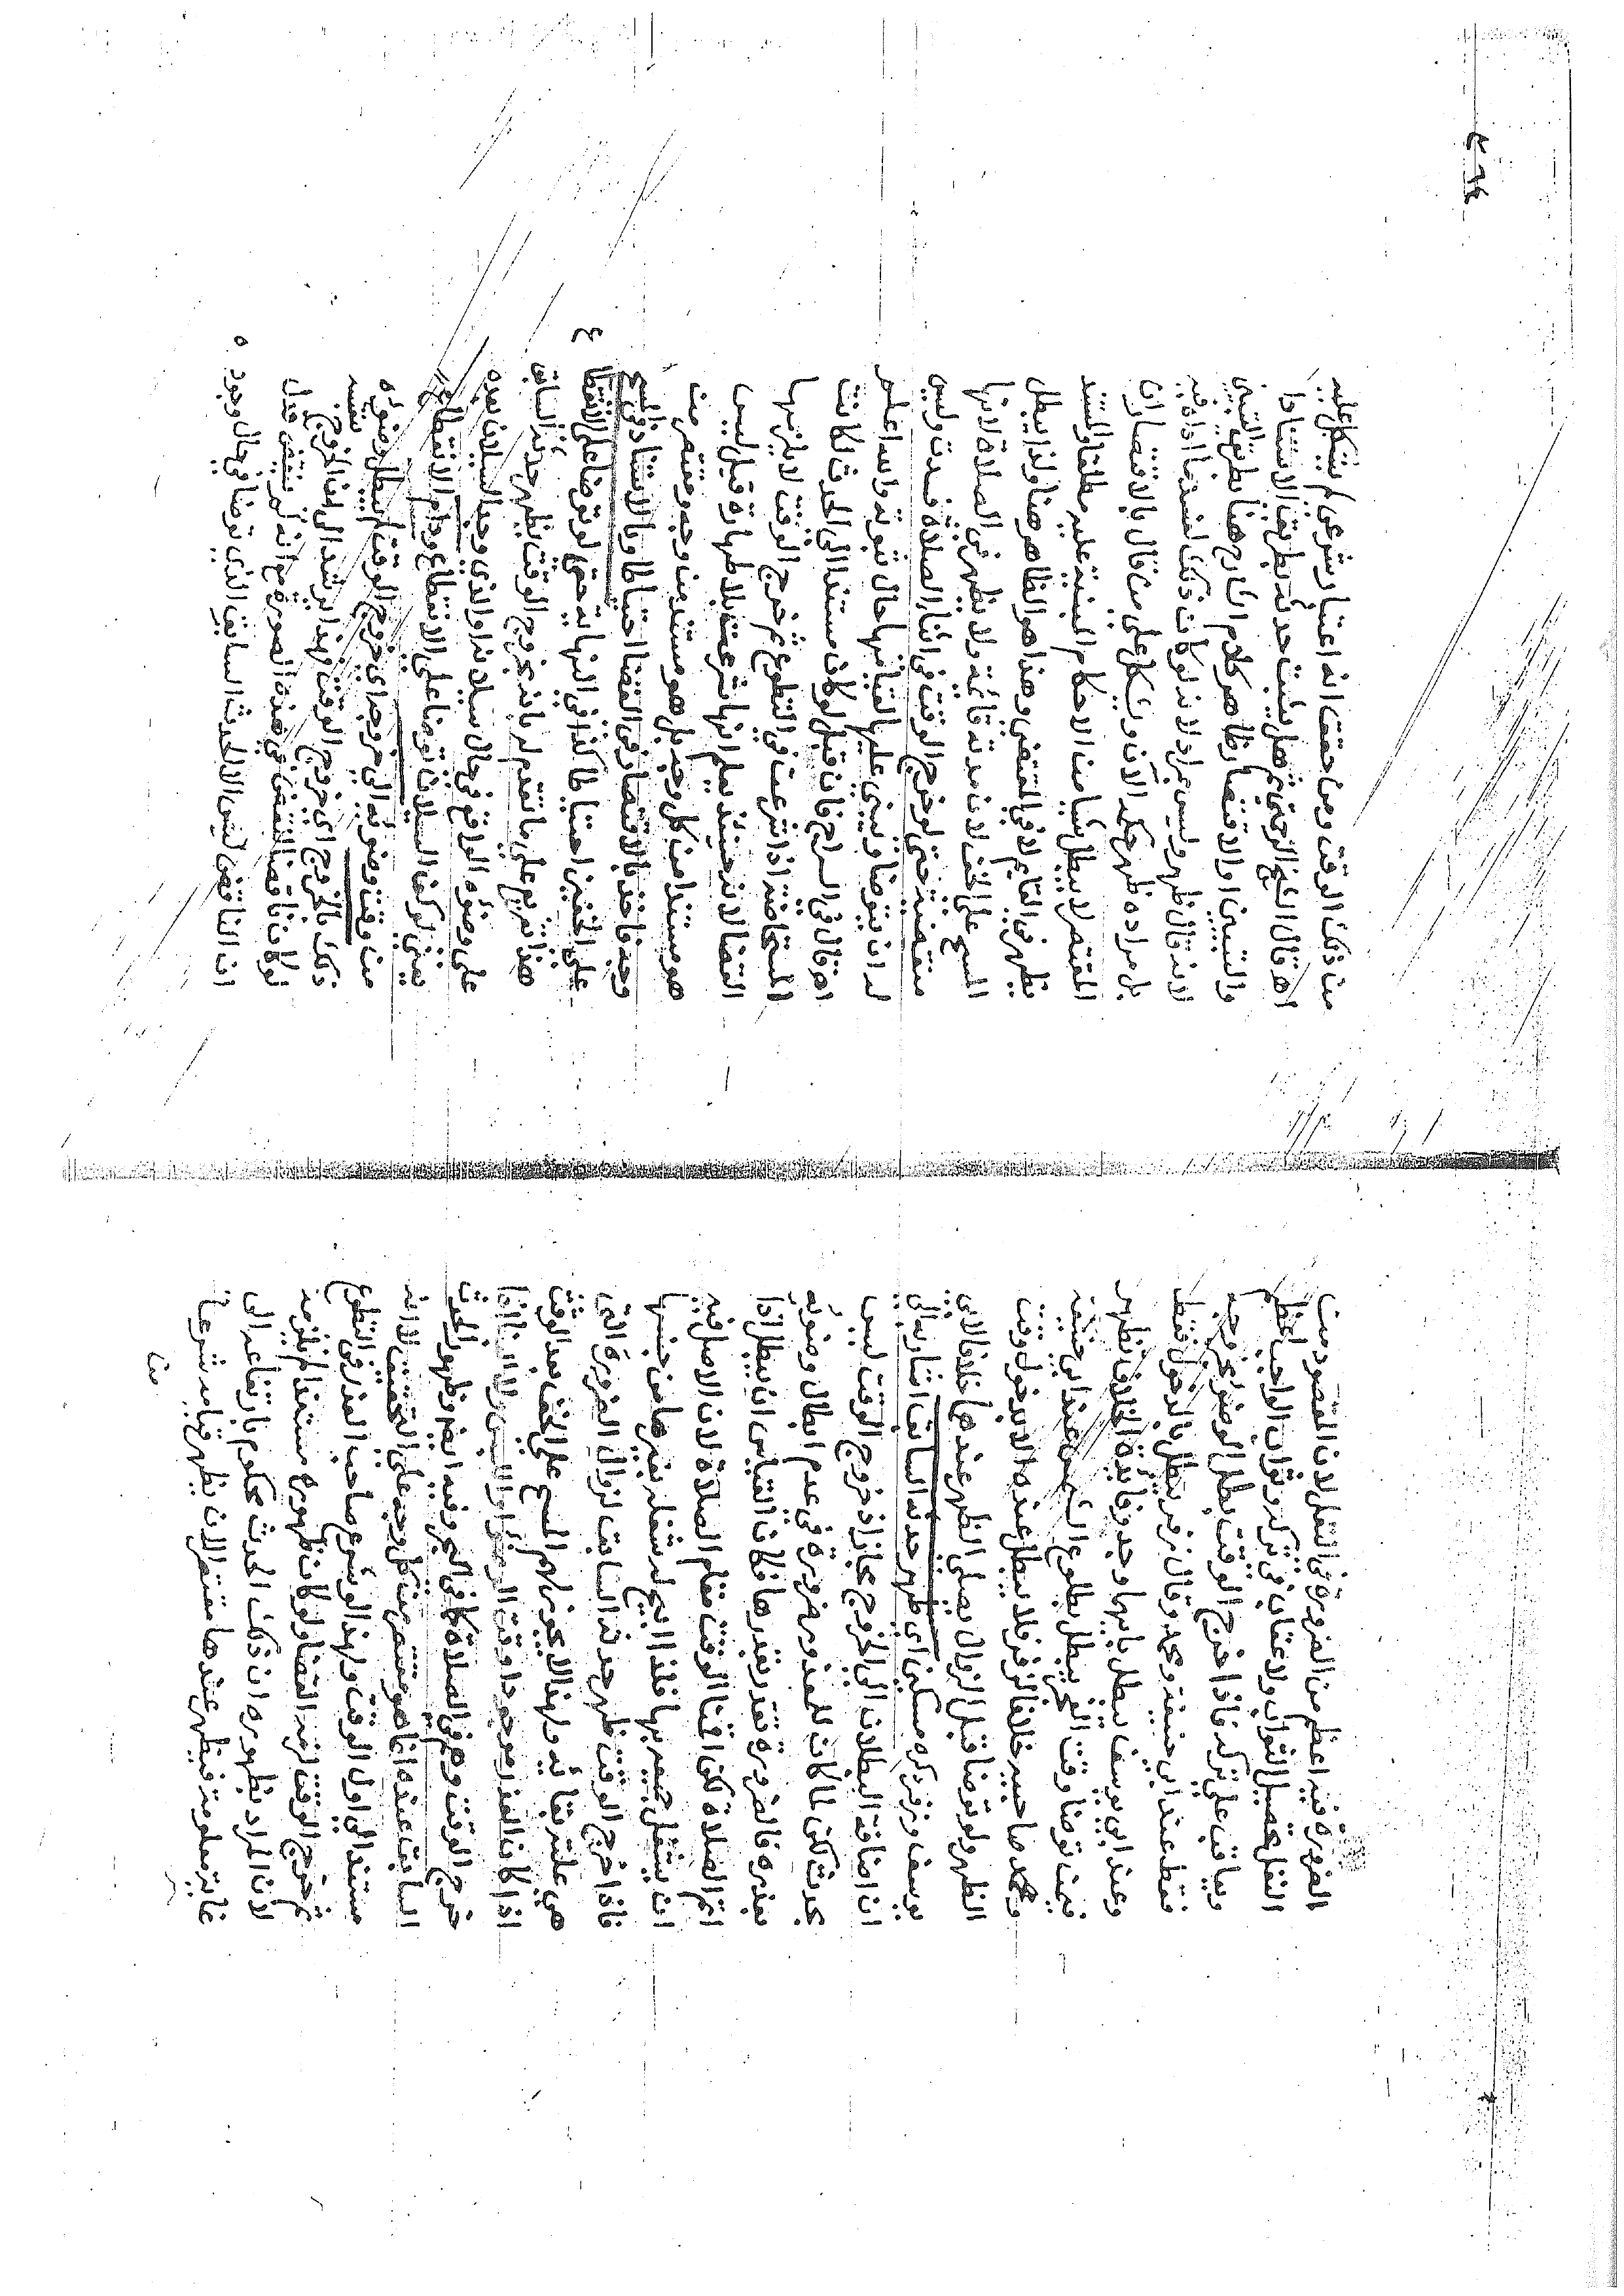 الضرورة فيه اعظم من الضرورة في النفل لان المقصود من
النفل تحصيل الثواب ولا عقاب في تركه وثواب الواجب اعظم
ويعاقب على تركه فاذا خرج الوقت بطل الوضوء بخروجه
فقط عند ابي حنيفة ومحمد وقال زفر يبطل بالدخول فقط
وعند ابي يوسف يبطل بايهما وجد وفائدة الخلاف تظهر
فيمن توضا وقت الفجر يبطل بطلوع الشمس عند ابي حنيفة
وصاحبيه خلافا لزفر فلا يبطل عنده الا بدخول وقت
الظهر ولو توضا قبل الزوال يصلي الظهر عندهما خلافا لابي
يوسف وزفر ذكره مسكين اي ظهر حدثه السابق اشار به الى
ان اضافة البطلان الى الخروج مجاز اذ خروج الوقت ليس
بحدث لكن لما كان للمعذور ضرورة في عدم ابطال وضوئه
بعذره فالضرورة تقدر بقدرها فكان القياس ان يبطل اذا
اتم الصلاة لكن اقمنا الوقت مقام الصلاة لان الاصل فيه
ان يشتغل جميعه بها فلذا ابيح له شغله بغيرها من جنسها
فاذا خرج الوقت ظهر حدثه السابق لزوال الضرورة التي
هي علة بقائه ولهذا لا يجوز لهم المسح على الخف بعد الوقت
اذا كان العذر موجودا وقت الوضوء او اللبس ولا البناء اذا
خرج الوقت وهم في الصلاة كما في البحر وفيه ايضا وظهور الحدث
السابق عنده انما هو مقتصر من كل وجه على التحقيق لا انه
مستند الى اول الوقت ولهذا لو شرع صاحب العذر في التطوع
ثم خرج الوقت لزمه القضاء ولو كان ظهوره مستندا لم يلزمه
لان المراد بظهوره ان ذلك الحدث محكوم بارتفاعه الى
غاية معلومة فيظهر عندها مقتصرا لا ان يظهر قيامه شرعا
من
من ذلك الوقت ومن حقق انه اعتبار شرعي لم يشكل عليه
اهـ قال الشيخ الرحمتي ثم هل يثبت حدثه بطريق الاستناد
والتبيين او الاقتصار ظاهر كلام الشارح هنا بطريق التبيين
لانه قال ظهر وليس بمراد لانه لو كان ذلك لفسد ما اداه فيه
بل مراده ظهر حكمه الآن ويشكل على من قال بالاقتصار ان
المقتصر لا يبطل شيئا من الاحكام المبنية عليه مطلقا والمستند
يظهر في القائم لا في المنقضي وهذا هو الظاهر هنا ولذا يبطل
المسح على الخف لان مدته قائمة ولا يظهر في الصلاة لانها
منقضية حتى لو خرج الوقت في اثناء الصلاة فسدت وليس
له ان يتوضا ويبني عليها لقيامها حال ثبوته والله اعلم
اهـ قال في السراج فان قيل لو كان مستندا الى الحدث لكانت
المستحاضة اذا شرعت في التطوع ثم خرج الوقت لا يلزمها
القضاء لانه حينئذ يعلم انها شرعت بلا طهارة قيل ليس
هو مستندا من كل وجه بل هو مستند من وجه ومقتصر من
وجه فاخذ بالاقتصار في القضاء احتياطا وبالاستناد في المسح
على الخفين احتياطا كذا في النهاية حتى لو توضا على الانقطاع
هذا تفريع على ما تقدم له بانه بخروج الوقت يظهر حدثه السابق
على وضوئه الواقع في حال سيلانه او الذي وجد السيلان بعده
يعني لو كف السيلان توضا على الانقطاع ودام الانقطاع
من وقت وضوئه الى خروجه اي خروج الوقت لم يبطل وضوءه
ذلك بالخروج اي خروج الوقت وهذا يرشد الى ان الخروج نفسه
لو كان ناقضا لنقض في هذه الصورة مع انه لم ينتقض فدل
ان الناقض ليس الا الحدث السابق الذي توضا في حال وجوده